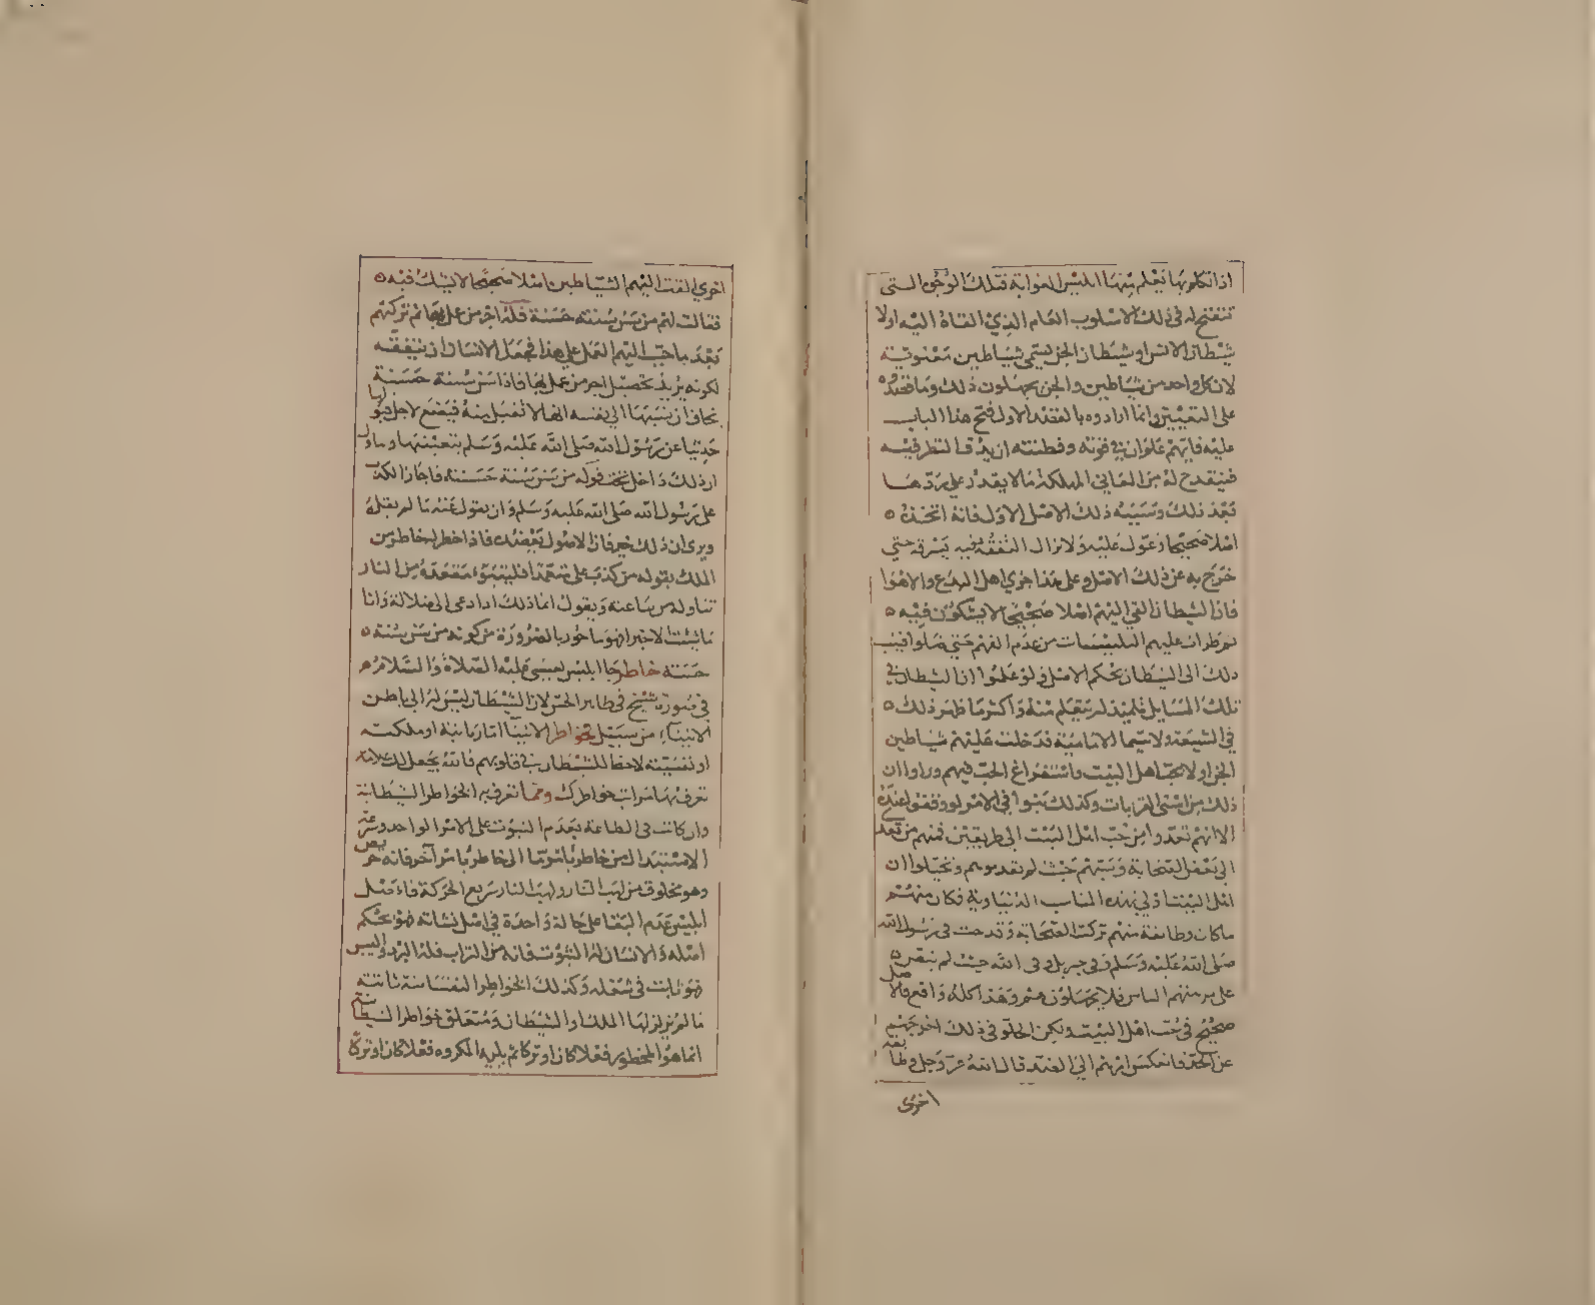 اذا تكلم بها يعلم منها ابليس الغواية فتلك الوجوه التى
تنفتح له فى ذلك الاسلوب العام الذى القاه اليه اولا
شيطان الانس او شيطان الجن تسمى شياطين معنوية
لان كل واحد من شياطين والجن يجهلون ذلك وما قصدوه
على التعيين وانما ارادوه بالقصد الاول فتح هذا الباب
عليه فانهم علموا ان فى قوته وفطنته ان يدقق النظر فيه
فينقدح له من المعانى المهلكة ما لا يقدر على ردها
بعد ذلك وسببه ذلك الاصل الاول فانه اتخذه
اصلا صحيحا وعول عليه ولا يزال التفقه فيه يسرقه حتى
خرج به عن ذلك الاصل وعلى هذا جرى اهل البدع والاهوا
فان الشيطان القى اليهم اصلا صحيحا لا يشكون فيه
ثم طرات عليهم التلبيسات من عدم الفهم حتى ضلوا فينسب
ذلك الى الشيطان بحكم الاصل ولو علموا ان الشيطان فى
تلك المسايل تلميذ له يتعلم منه واكثر ما ظهر ذلك
فى الشيعة ولا سيما الامامية فدخلت عليهم شياطين
الجن اولا بحب اهل البيت واستفراغ الحب فيهم وراوا ان
ذلك من اسنى القربات وكذلك هو فى الامر لو وقفوا عنده
الا انهم تعدوا من حب اهل البيت الى طريقين فمنهم من تعدى
الى بغض الصحابة وسبهم حيث لم يقدموهم وتخيلوا ان
اهل البيت اولى بهذه المناصب الدنياوية فكان منهم
ما كان وطائفة منهم تركت الصحابة وقدحت فى رسول الله
صلى الله عليه وسلم وفى جبريل وفى الله حيث لم ينص
على مرتبتهم للناس فلا يجهلون وهذا كله واقع من اصل
صحيح فى حب اهل البيت ولكن الغلو فى ذلك اخرجهم
عن الحد فانعكس امرهم الى الضد قال الله عز وجل وطائفة
اخرى
اخرى القت اليهم الشياطين اصلا صحيحا لا يشك فيه
فقالت لهم من سن سنة حسنة فله اجر من عمل بها ثم تركتهم
بعد ما حبب اليهم العمل على هذا فجعل الانسان ان يتفقه
لكونه يريد تحصيل اجر من عمل بها فاذا سن سنة حسنة
يخاف ان ينسبها الى نفسه انها لا تقبل منه فيضع لاجل قبولها
حديثا عن رسول الله صلى الله عليه وسلم بتعينها ويتاول
ان ذلك داخل تحت قوله من سن سنة حسنة فاجاز الكذب
على رسول الله صلى الله عليه وسلم وان يقول عنه ما لم يقله
ويرى ان ذلك خير فان الاصول تعضده فاذا خطر له خاطر من
الملك بقوله من كذب على متعمدا فليتبوا مقعده من النار
تناوله من ساعته ويقول انما ذلك اذا دعى الى ضلالة وانا
ما سننت الا خيرا فهو ماجور بالضرورة من كونه من سن سنة
حسنة خاطر جا ابليس لعيسى عليه الصلاة والسلام
فى صورة شيخ فى ظاهر الحس لان الشيطان ليس له الى باطن
الانبياء من سبيل فخواطر الانبياء اما ربانية او ملكية
او نفسية لا حظ للشيطان فى قلوبهم فانه يجعل لك علامة
تعرف بها مراتب خواطرك ومما تعرف به الخواطر الشيطانية
وان كانت فى الطاعة بعدم الثبوت على الامر الواحد وسرعة
الاستبدال من خاطر بامر ما الى خاطر بامر آخر فانه حريص
وهو مخلوق من لهب النار ولهب النار سريع الحركة فاصل
ابليس عدم البقا على حالة واحدة فى اصل نشاته فهو بحكم
اصله والانسان له الثبوت فانه من التراب فله البرد واليبس
فهو ثابت فى شغله وكذلك الخواطر النفسانية ثابتة
ما لم يزلزلها الملك او الشيطان ومتعلق خواطر الشيطان
انما هو المحظور فعلا كان او تركا ثم يليه المكروه فعلا كان او تركا